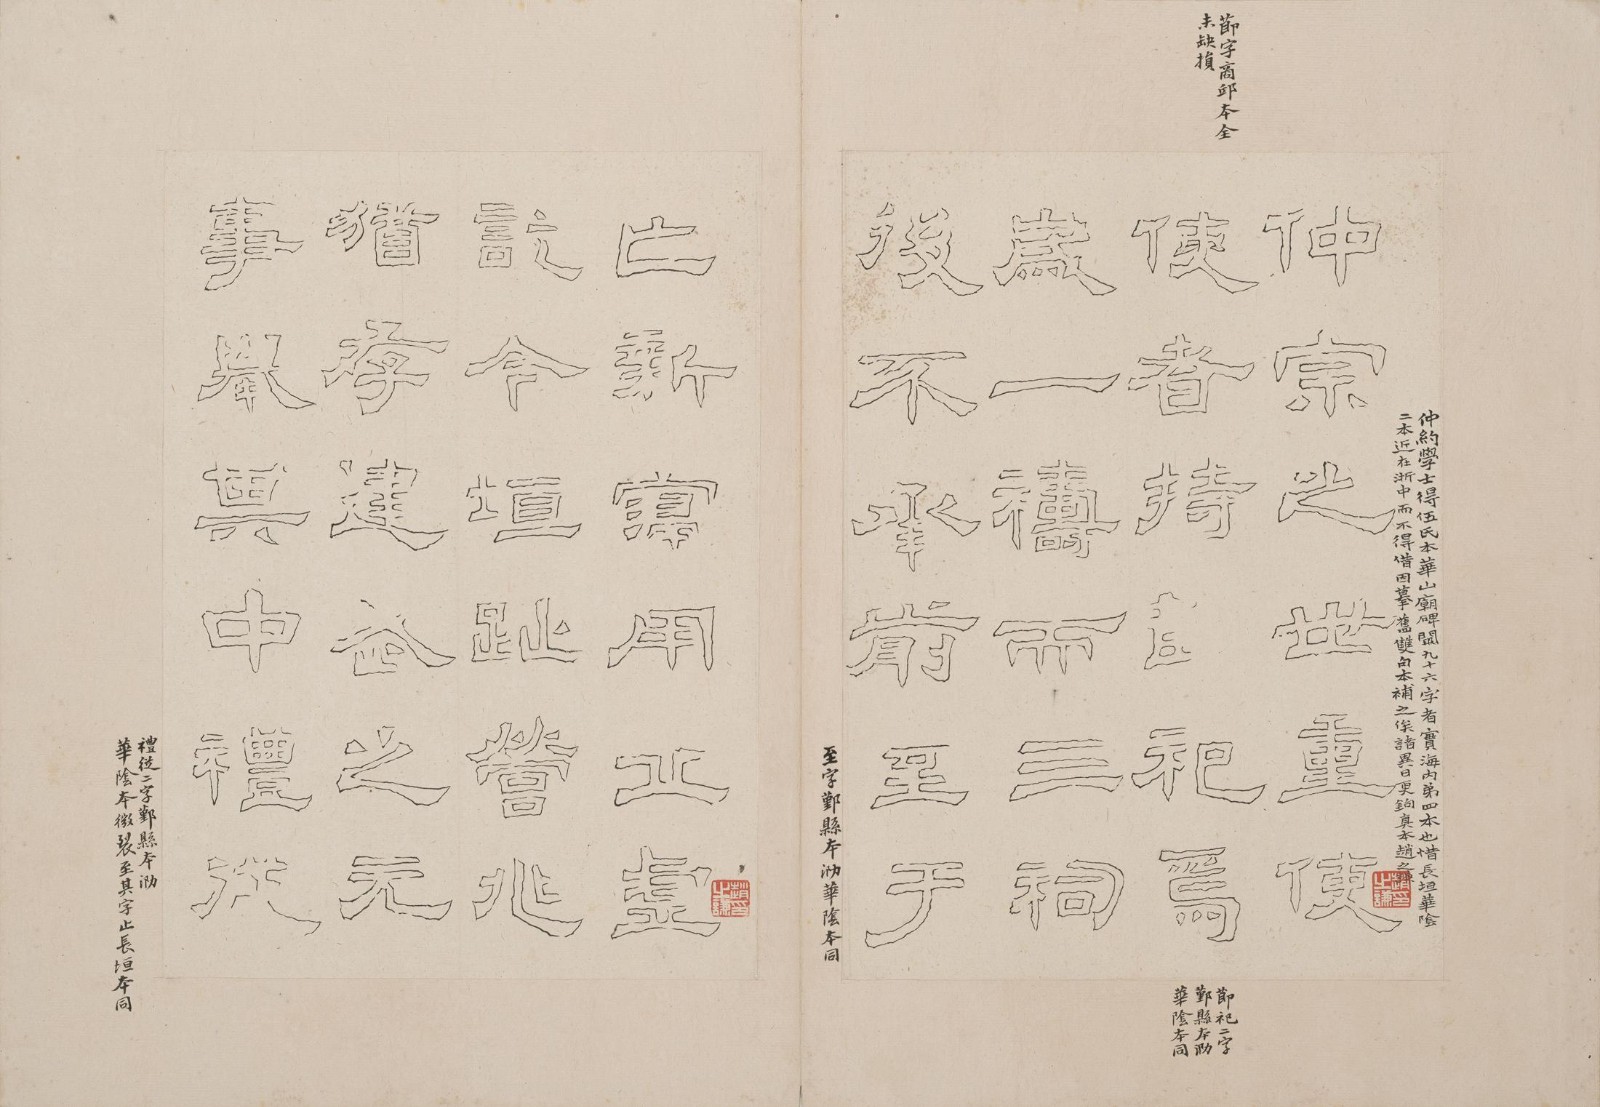 節字商邱本全
未缺損
仲約學士得伍氏本華山廟碑闕九十六字者實海內第四本也惜長垣華陰
二本近在浙中而不得借因摹舊雙句本補之俟諸異日更鉤真本趙之謙
趙印之謙
仲宗之世重使
使者持節祀焉
歲一禱而三祠
後不承前至于
節祀二字
鄞縣本泐
華陰本同
至字鄞縣本泐華陰本同
亡新寖用丘虛
訖今垣趾營兆
猶存建武之元
事舉其中禮從
趙印之謙
禮從二字鄞縣本泐
華陰本微裂至其字止長垣本同